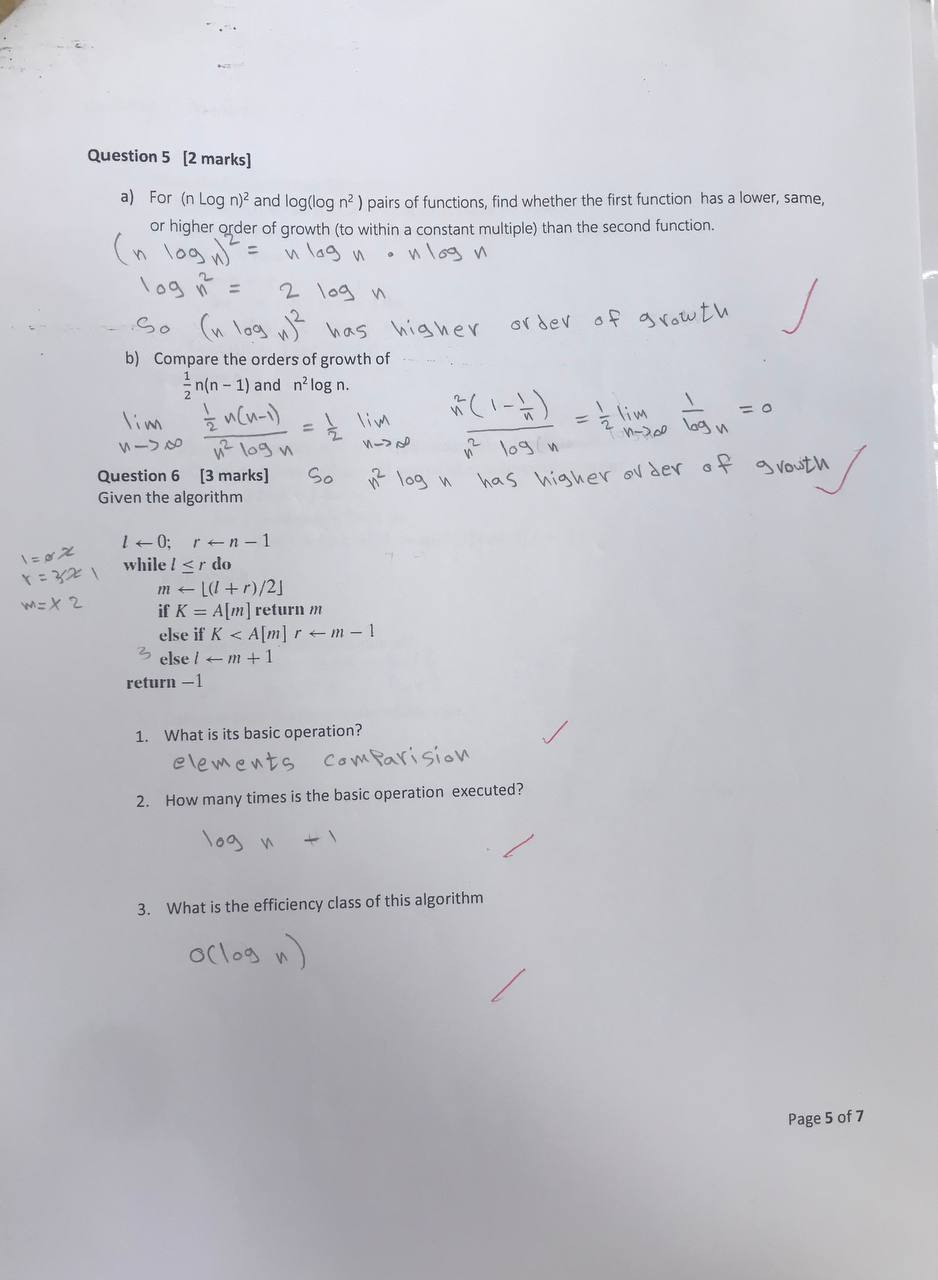 Question 5 [2 marks]
a) For (n Log n)² and log(log n² ) pairs of functions, find whether the first function has a lower, same,
or higher order of growth (to within a constant multiple) than the second function.
(n log n)² = n log n • n log n
log n² = 2 log n
So (n log n)² has higher order of growth
b) Compare the orders of growth of
½n(n − 1) and n² log n.
lim n→∞ ½ n(n-1) / n² log n = ½ lim n→∞ n²(1 - 1/n) / n² log n = ½ lim n→∞ 1 / log n = 0
So n² log n has higher order of growth
Question 6 [3 marks]
Given the algorithm
l ← 0; r ← n − 1
while l ≤ r do
m ← ⌊(l + r)/2⌋
if K = A[m] return m
else if K < A[m] r ← m − 1
3 else l ← m + 1
return −1
1. What is its basic operation?
elements comparision
2. How many times is the basic operation executed?
log n + 1
3. What is the efficiency class of this algorithm
O(log n)
Page 5 of 7